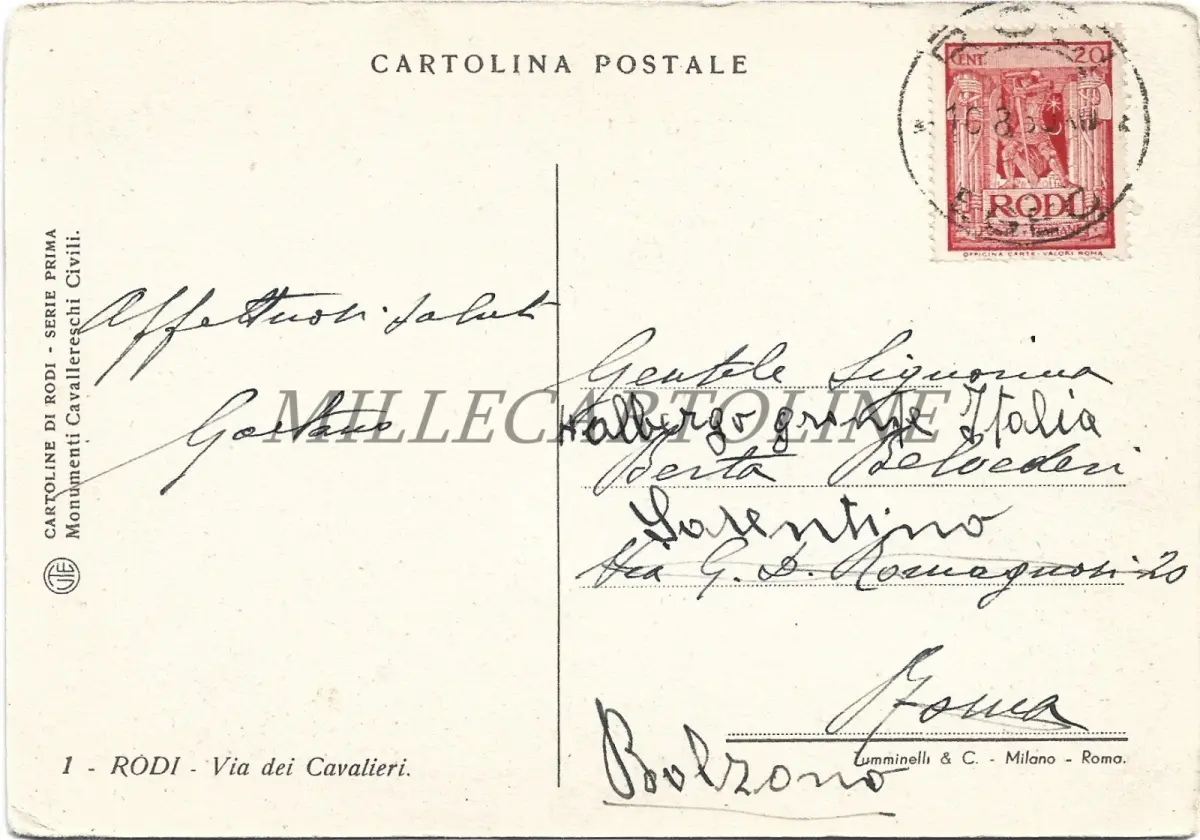 CARTOLINA POSTALE
CENT. 20
10 8
RODI
OFFICINA CARTE-VALORI ROMA
CARTOLINE DI RODI - SERIE PRIMA
Monumenti Cavallereschi Civili.
UTE
Affettuosi saluti
Gaetano
MILLECARTOLINE
Gentile Signorina
albergo Italia
Berta Belvederi
Sarentino
Via G. D. Romagnosi 20
Roma
Bolzano
1 - RODI - Via dei Cavalieri.
Zumminelli & C. - Milano - Roma.